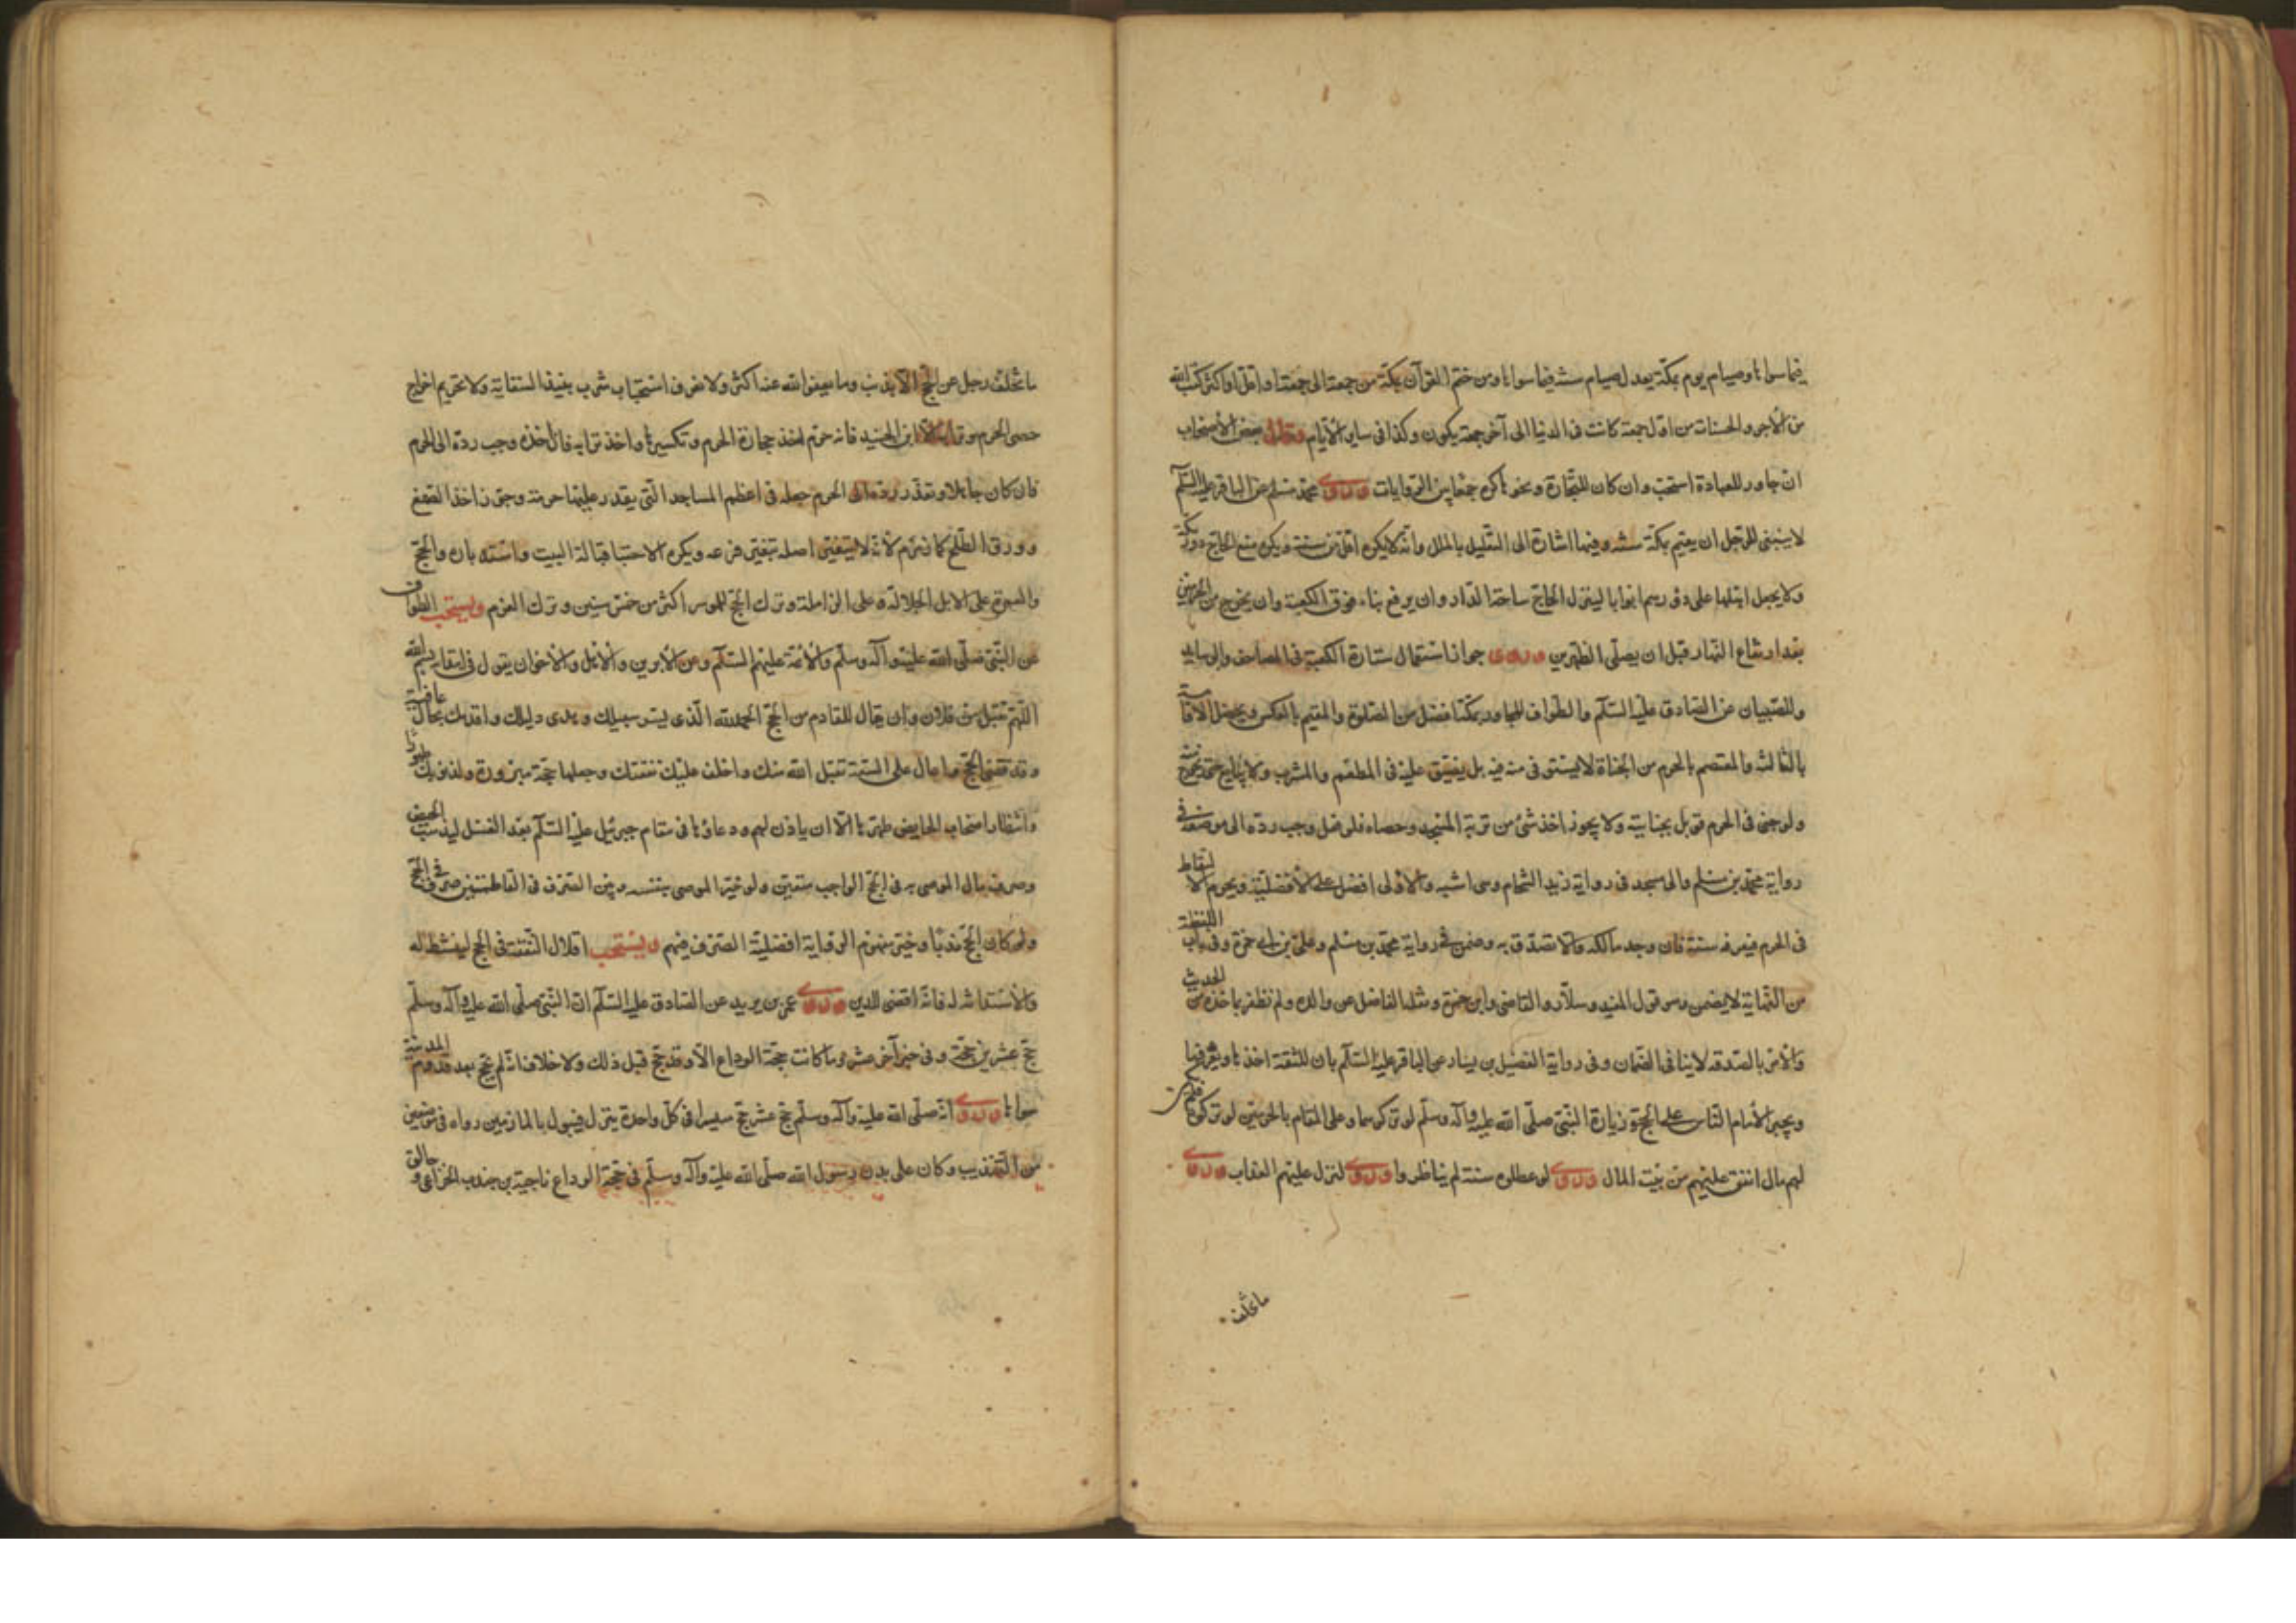 فيما سواها وصيام يوم بمكة يعدل صيام سنة فيما سواها ومن ختم القرآن بمكة من جمعة الى جمعة او اقل او اكثر كتب الله
من الأجر والحسنات من اول جمعة كانت فى الدنيا الى آخر جمعة يكون وكذا فى ساير الأيام وقال بعض الأصحاب
ان جاور للعبادة استحب وان كان للتجارة ونحوها كره جمعا بين الروايات وروى محمد بن مسلم عن الباقر عليه السلم
لا ينبغى للرجل ان يقيم بمكة سنة وفيها اشارة الى التعليل بالملل وانه لا يكره اقل من سنة ويكره منع الحاج دور مكة
ولا يجعل اهلها على دورهم ابوابا لينزل الحاج ساحة الدار وان يرفع بناء فوق الكعبة وان يخرج من الحرمين
بعد ارتفاع النهار قبل ان يصلى الظهرين وروى جواز استعمال ستارة الكعبة فى المصاحف والوسايد
وللصبيان عن الصادق عليه السلم والطواف للمجاور بمكة افضل من الصلوة والمقيم بالعكس
بالثالثة والمعتصم بالحرم من الجناة لا يستوفى منه فيه بل يضيق عليه فى المطعم والمشرب ولا يبايع حتى يخرج
ولو جنى فى الحرم قوبل بجنايته ولا يجوز اخذ شئ من تربة المسجد وحصاه فلو فعل وجب رده الى موضعه فى
رواية محمد بن مسلم والى مسجد فى رواية زيد الشحام وهى اشبه والأولى افضل على الأفضلية ويحرم لالتقاط
فى الحرم فيعرفه سنة فان وجد مالكه والا تصدق به وضمن فى رواية محمد بن مسلم وعلى بن ابى حمزة وفى باب اللقطة
من النهاية لا يضمن وهو قول المفيد وسلار والقاضى وابن حمزة ونقله الفاضل عن والده ولم نظفر بماخذه من الحديث
والأمر بالصدقة لا ينافى الضمان وفى رواية الفضيل بن يسار عن الباقر عليه السلم بان للثقة اخذها ويعرفها
ويجبر الأمام الناس على الحج وزيارة النبى صلى الله عليه وآله وسلم لو تركوهما وعلى المقام بالحرمين لو تركوه
لهم مال انفق عليهم من بيت المال وروى لو عطلوه سنة لم يناظروا وروى لنزل عليهم العذاب وروى
ما تخلف
ما تخلف رجل عن الحج الا بذنب وما يعفو الله عنه اكثر ولا نعرف استحباب شرب نبيذ السقاية ولا تحريم اخراج
حصى الحرم وترابه الا ابن الجنيد فانه حرم اخذ حجارة الحرم وتكسيرها واخذ ترابه فان اخذه وجب رده الى الحرم
فان كان جاهلا وتعذر رده الى الحرم جعله فى اعظم المساجد التى يقدر عليها حرمة وجوز اخذ الضغغ
وورق الطلح كانه زعم لأنه لا يتعين اصله تبعيض فرعه ويكره الاحتبا قبالة البيت واستدباره والحج
والعمرة على الابل الجلالة وعلى الزاملة وترك الحج للموسر اكثر من خمس سنين وترك العزم ويستحب الطواف
عن النبى صلى الله عليه وآله وسلم والأئمة عليهم السلم وعن الأبوين والأهل والأخوان يقول فى ابتدائه بسم الله
اللهم تقبل من فلان وان يقال للقادم من الحج الحمد لله الذى يسر سبيلك وهدى دليلك واقدمك بحال عافية
وقد قضى الحج واعان على السعة تقبل الله منك واخلف عليك نفقتك وجعلها حجة مبرورة ولذنوبك طهورا
وانتظار اصحاب الحايض طهرها الا ان ياذن لهم ودعاؤها فى مقام جبرئيل عليه السلم بعد الغسل ليذهب الحيض
وصرف مال الموصى به فى الحج الواجب متعين ولو خير الموصى بينه وبين الصرف فى الفاطميين صرف فى الحج
ولو كان الحج مندبا وخير فمفهوم الرواية افضلية الصرف فيهم ويستحب اقلال النفقة فى الحج لينشط له
والأستدانة له فانه اقضى للدين وروى عمر بن يزيد عن الصادق عليه السلم ان النبى صلى الله عليه وآله وسلم
حج عشرين حجة وفى خبر آخر عشر وما كانت حجة الوداع الا وقد حج قبل ذلك ولا خلاف انه لم يحج بعد قدوم المدينة
سواها وروى انه صلى الله عليه وآله وسلم حج عشر حجج مستسرا فى كل واحدة ينزل فيبول بالمازمين رواه فى موضعين
من التهذيب وكان على بدن رسول الله صلى الله عليه وآله وسلم فى حجة الوداع ناجية بن جندب الخزاعى وحالق